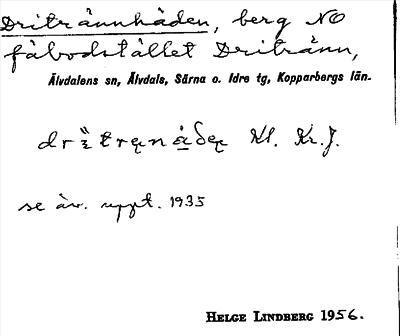 Dritrännhåden, berg NO
fäbodstället Dritränn,
Älvdalens sn, Älvdals, Särna o. Idre tg, Kopparbergs län.
Kl. Kr. J.
se äv. uppt. 1935
HELGE LINDBERG 1956.